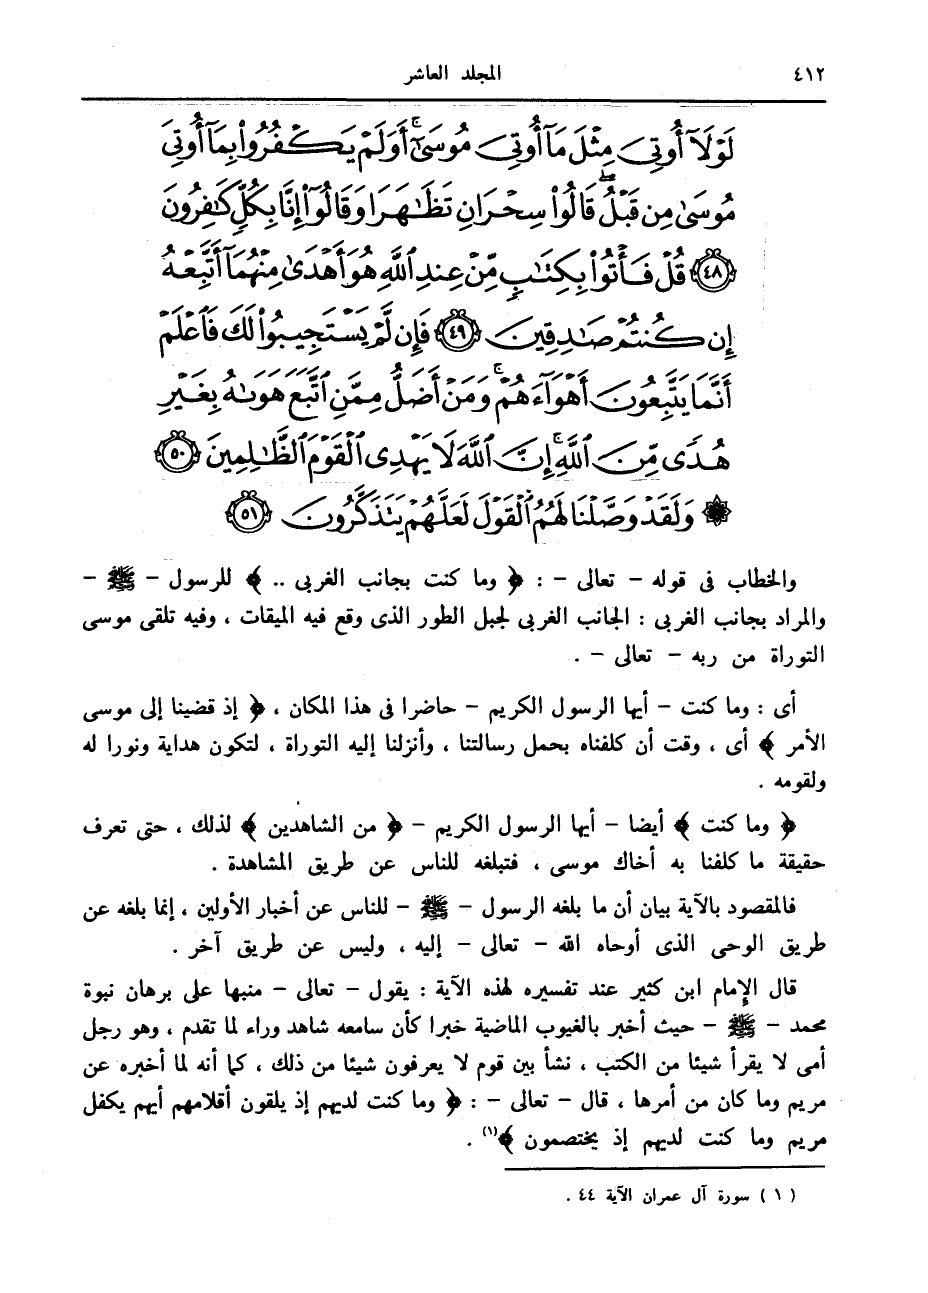 ٤١٢ المجلد العاشر
لَوْلَآ أُوتِىَ مِثْلَ مَآ أُوتِىَ مُوسَىٰٓ ۚ أَوَلَمْ يَكْفُرُوا۟ بِمَآ أُوتِىَ
مُوسَىٰ مِن قَبْلُ ۖ قَالُوا۟ سِحْرَانِ تَظَٰهَرَا وَقَالُوٓا۟ إِنَّا بِكُلٍّ كَٰفِرُونَ
﴿٤٨﴾ قُلْ فَأْتُوا۟ بِكِتَٰبٍ مِّنْ عِندِ ٱللَّهِ هُوَ أَهْدَىٰ مِنْهُمَآ أَتَّبِعْهُ
إِن كُنتُمْ صَٰدِقِينَ ﴿٤٩﴾ فَإِن لَّمْ يَسْتَجِيبُوا۟ لَكَ فَٱعْلَمْ
أَنَّمَا يَتَّبِعُونَ أَهْوَآءَهُمْ ۚ وَمَنْ أَضَلُّ مِمَّنِ ٱتَّبَعَ هَوَىٰهُ بِغَيْرِ
هُدًى مِّنَ ٱللَّهِ ۚ إِنَّ ٱللَّهَ لَا يَهْدِى ٱلْقَوْمَ ٱلظَّٰلِمِينَ ﴿٥٠﴾
۞ وَلَقَدْ وَصَّلْنَا لَهُمُ ٱلْقَوْلَ لَعَلَّهُمْ يَتَذَكَّرُونَ ﴿٥١﴾
والخطاب فى قوله – تعالى – : ﴿ وما كنت بجانب الغربى .. ﴾ للرسول – ﷺ –
والمراد بجانب الغربى : الجانب الغربى لجبل الطور الذى وقع فيه الميقات ، وفيه تلقى موسى
التوراة من ربه – تعالى – .
أى : وما كنت – أيها الرسول الكريم – حاضرا فى هذا المكان ، ﴿ إذ قضينا إلى موسى
الأمر ﴾ أى ، وقت أن كلفناه بحمل رسالتنا ، وأنزلنا إليه التوراة ، لتكون هداية ونورا له
ولقومه .
﴿ وما كنت ﴾ أيضا – أيها الرسول الكريم – ﴿ من الشاهدين ﴾ لذلك ، حتى تعرف
حقيقة ما كلفنا به أخاك موسى ، فتبلغه للناس عن طريق المشاهدة .
فالمقصود بالآية بيان أن ما بلغه الرسول – ﷺ – للناس عن أخبار الأولين ، إنما بلغه عن
طريق الوحى الذى أوحاه الله – تعالى – إليه ، وليس عن طريق آخر .
قال الإمام ابن كثير عند تفسيره لهذه الآية : يقول – تعالى – منبها على برهان نبوة
محمد – ﷺ – حيث أخبر بالغيوب الماضية خبرا كأن سامعه شاهد وراء لما تقدم ، وهو رجل
أمى لا يقرأ شيئا من الكتب ، نشأ بين قوم لا يعرفون شيئا من ذلك ، كما أنه لما أخبره عن
مريم وما كان من أمرها ، قال – تعالى – : ﴿ وما كنت لديهم إذ يلقون أقلامهم أيهم يكفل
مريم وما كنت لديهم إذ يختصمون ﴾(١) .
(١) سورة آل عمران الآية ٤٤ .